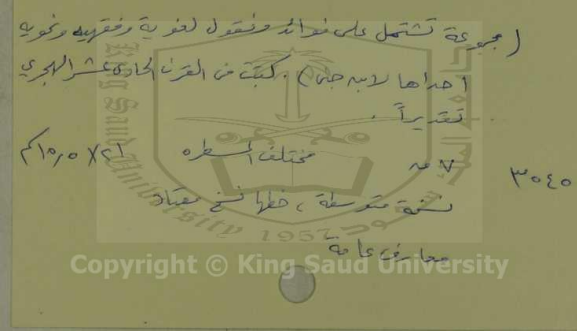 (مجموعة تشتمل على فوائد ونقول لغوية وفقهيه ونحويه
احداها لابن جني). كتبت في القرن الحادي عشر الهجري
تقديراً.
٣٠٤٥ ٧ ق مختلف المسطره ٢١×١٥٫٥ كم
نسخة متوسطة، خطها نسخ معتاد
معارف عامة
King Saud University
1957
Copyright © King Saud University